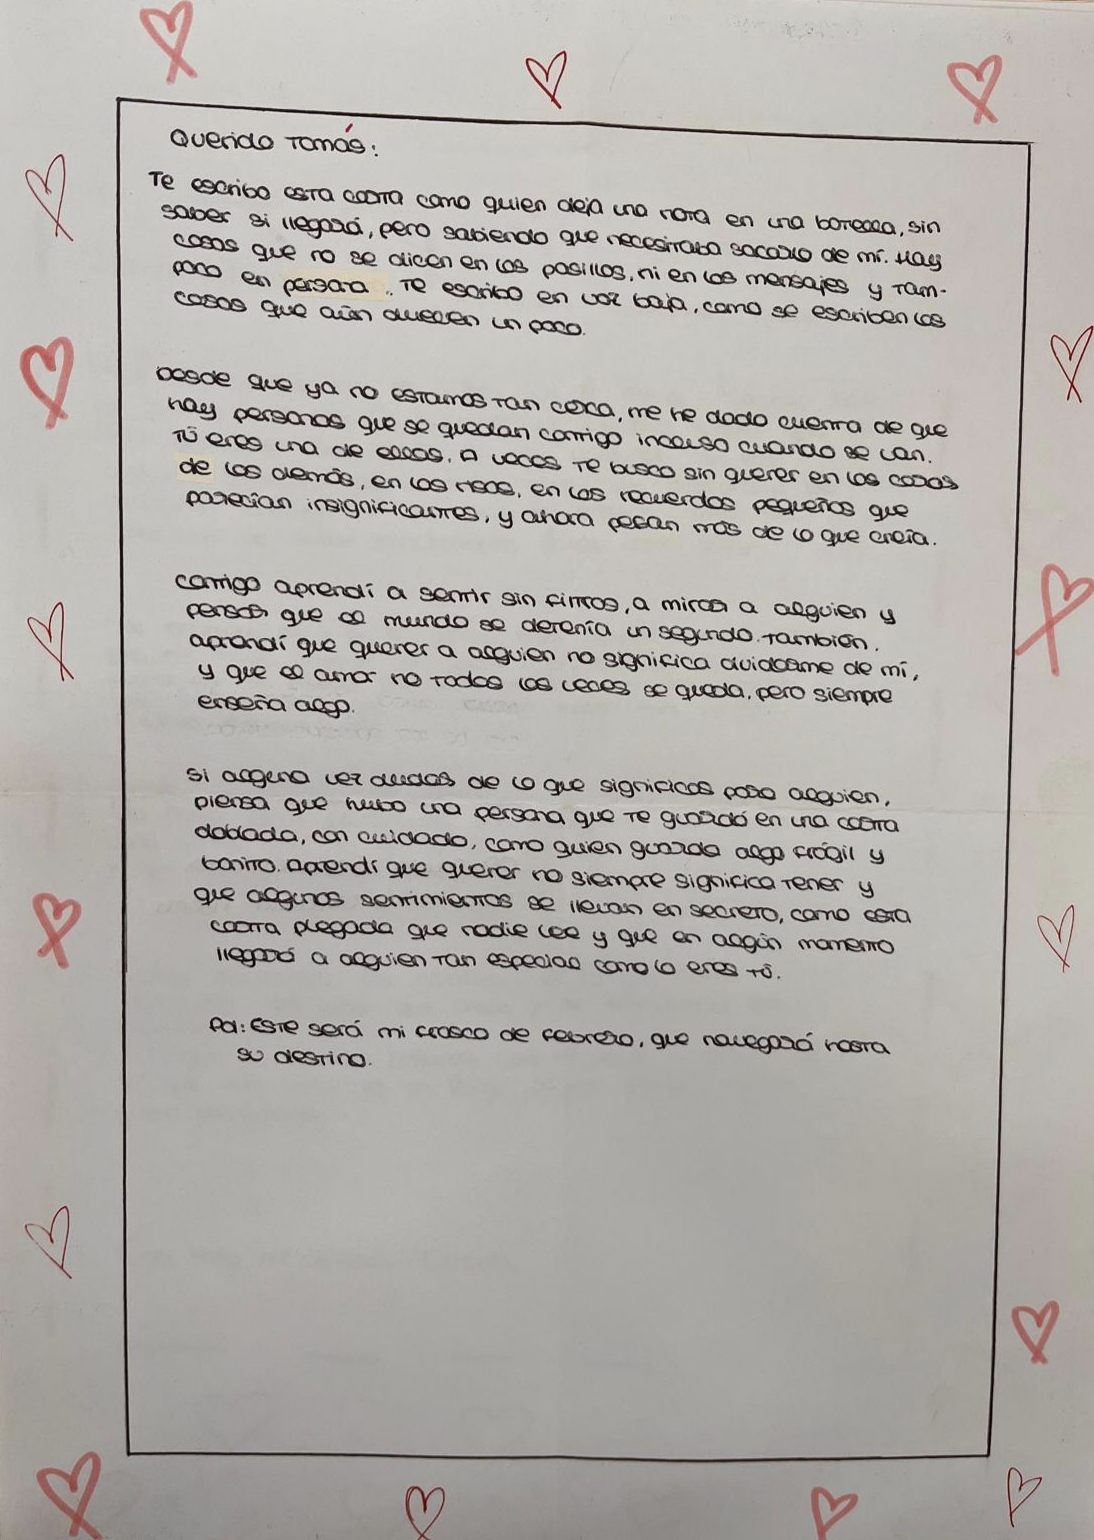 Querido Tomás:
Te escribo esta carta como quien deja una nota en una botella, sin
saber si llegará, pero sabiendo que necesitaba sacarlo de mí. Hay
cosas que no se dicen en los pasillos, ni en los mensajes y tam-
poco en persona. Te escribo en voz baja, como se escriben las
cosas que aún duelen un poco.
Desde que ya no estamos tan cerca, me he dado cuenta de que
hay personas que se quedan contigo incluso cuando se van.
Tú eres una de ellas. A veces te busco sin querer en las cosas
de los demás, en las risas, en los recuerdos pequeños que
parecían insignificantes, y ahora pesan más de lo que creía.
Contigo aprendí a sentir sin filtros, a mirar a alguien y
pensar que el mundo se detenía un segundo. También
aprendí que querer a alguien no significa olvidarme de mí,
y que el amor no todas las veces se queda, pero siempre
enseña algo.
Si alguna vez dudas de lo que significas para alguien,
piensa que hubo una persona que te guardó en una carta
doblada, con cuidado, como quien guarda algo frágil y
bonito. Aprendí que querer no siempre significa tener y
que algunos sentimientos se llevan en secreto, como esta
carta plegada que nadie lee y que en algún momento
llegará a alguien tan especial como lo eres tú.
Pd: Este será mi frasco de febrero, que navegará hasta
su destino.